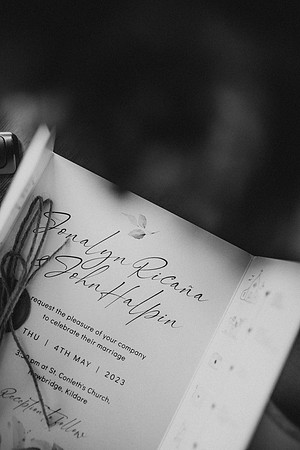 Jonalyn Ricaña
& John Halpin
request the pleasure of your company
to celebrate their marriage
THU | 4TH MAY | 2023
3:30 pm at St Conleth's Church,
Newbridge, Kildare
Reception to follow